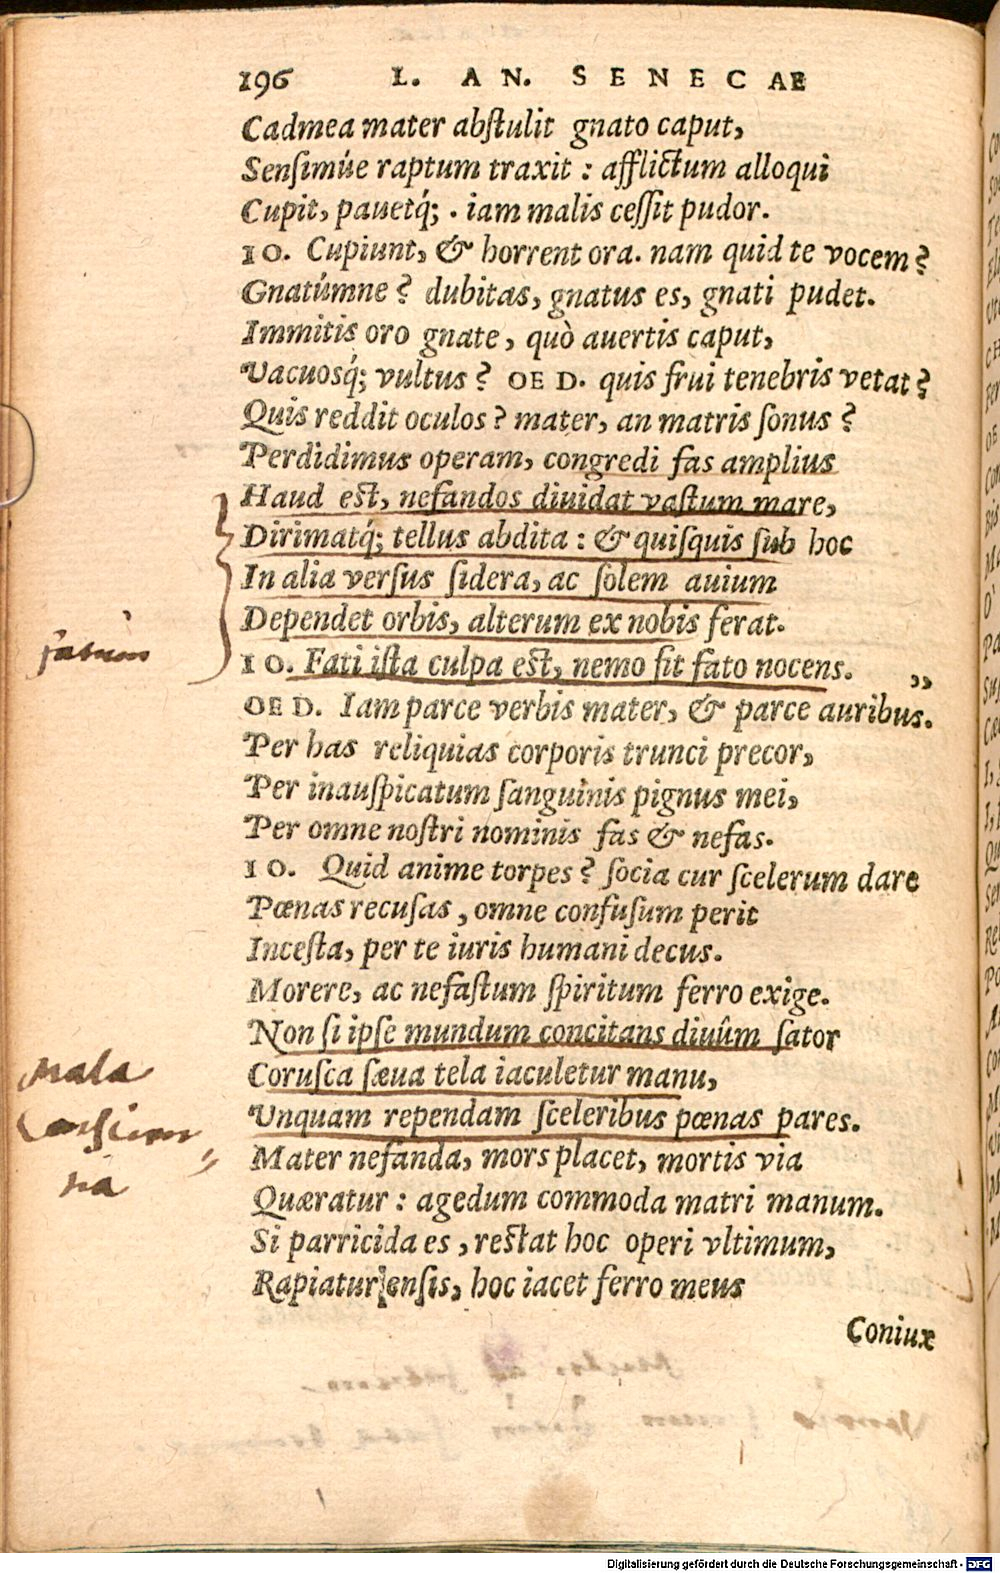 196 L. AN. SENECAE
Cadmea mater abſtulit gnato caput,
Senſimúe raptum traxit : afflictum alloqui
Cupit, pauetq́; . iam malis ceſſit pudor.
IO. Cupiunt, & horrent ora. nam quid te vocem?
Gnatúmne? dubitas, gnatus es, gnati pudet.
Immitis oro gnate, quò auertis caput,
Vacuosq́; vultus? OED. quis frui tenebris vetat?
Quis reddit oculos? mater, an matris ſonus?
Perdidimus operam, congredi fas amplius
Haud eſt, nefandos diuidat vaſtum mare,
Dirimatq́; tellus abdita : & quiſquis ſub hoc
In alia verſus ſidera, ac ſolem auium
Dependet orbis, alterum ex nobis ferat.
fatum
IO. Fati iſta culpa eſt, nemo fit fato nocens. ,,
OED. Iam parce verbis mater, & parce auribus.
Per has reliquias corporis trunci precor,
Per inauſpicatum ſanguinis pignus mei,
Per omne noſtri nominis fas & nefas.
IO. Quid anime torpes? ſocia cur ſcelerum dare
Pœnas recuſas, omne confuſum perit
Inceſta, per te iuris humani decus.
Morere, ac nefaſtum ſpiritum ferro exige.
Non ſi ipſe mundum concitans diuûm ſator
Coruſca ſæua tela iaculetur manu,
Vnquam rependam ſceleribus pœnas pares.
mala
Conſcien,,
tia
Mater nefanda, mors placet, mortis via
Quæratur : agedum commoda matri manum.
Si parricida es, reſtat hoc operi vltimum,
Rapiatur enſis, hoc iacet ferro meus
Coniux
Digitalisierung gefördert durch die Deutsche Forschungsgemeinschaft - DFG